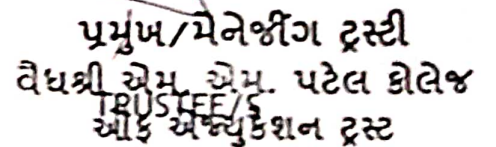 પ્રમુખ/મેનેજીંગ ટ્રસ્ટી
વૈધશ્રી એમ. એમ. પટેલ કોલેજ
TRUSTEE/S
ઓફ એજ્યુકેશન ટ્રસ્ટ